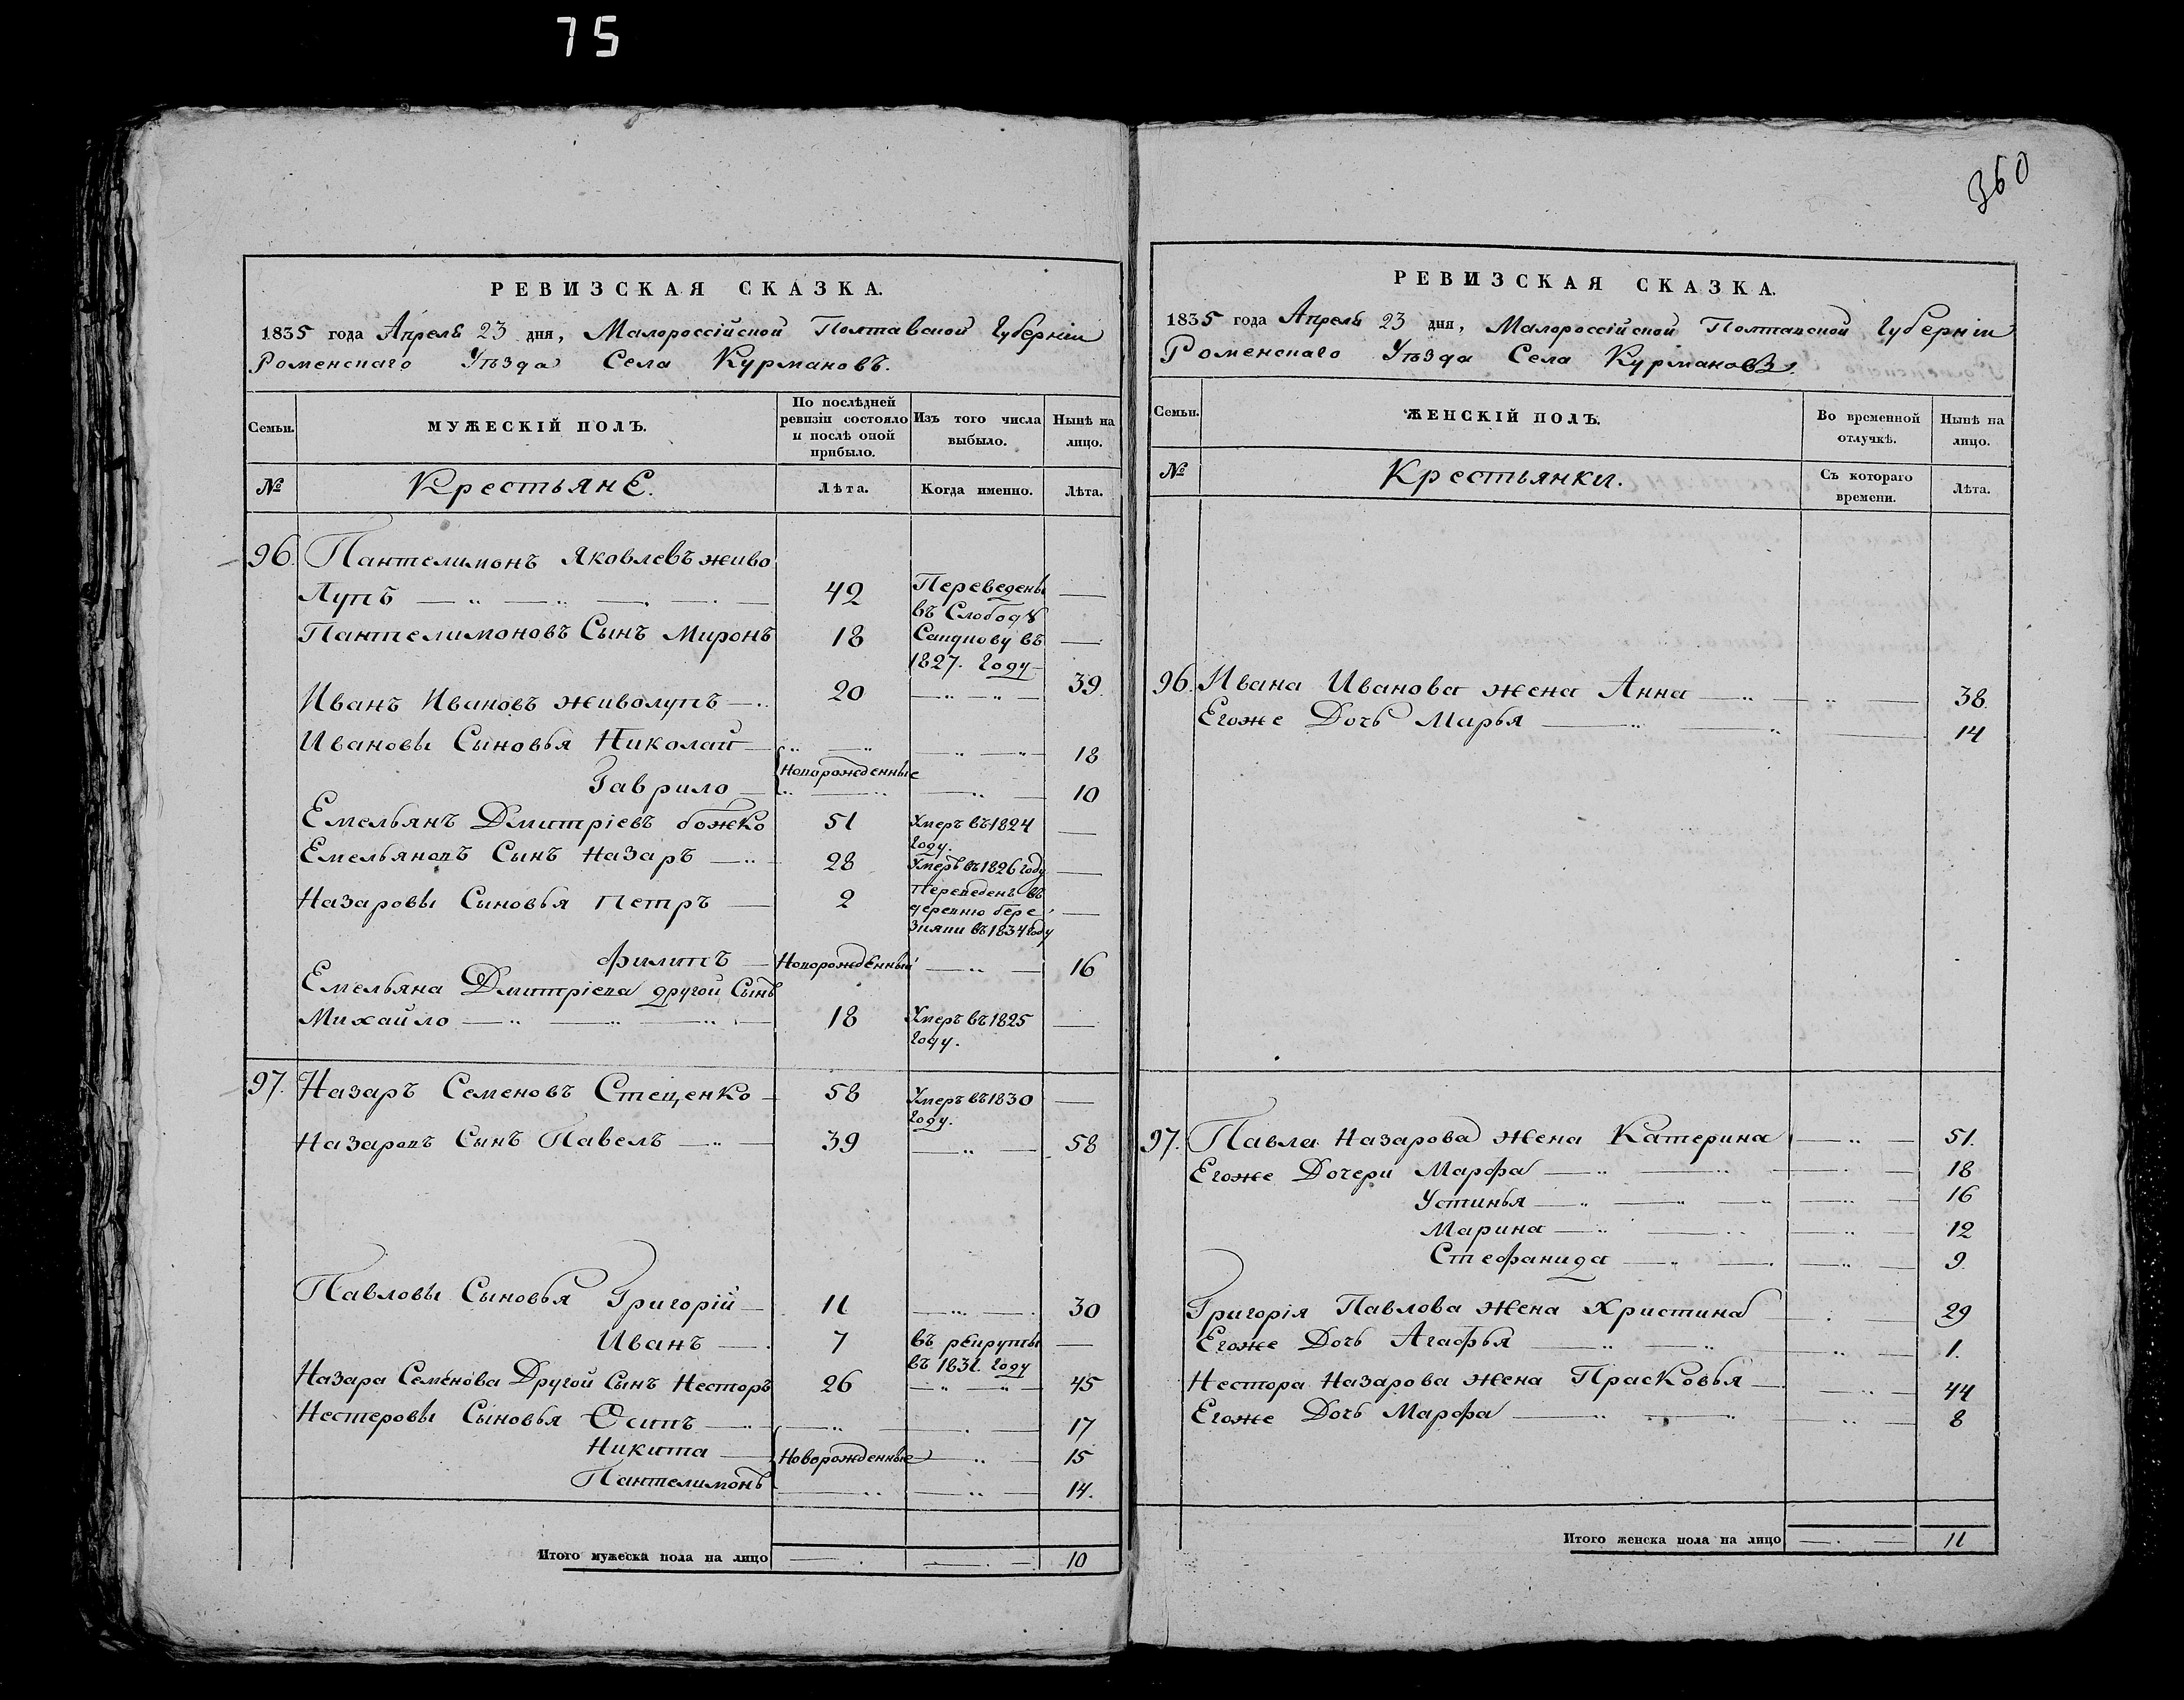 75
360
РЕВИЗСКАЯ СКАЗКА.
1835 года Апреля 23 дня, Малороссійской Полтавской Губерніи
Роменскаго Уѣзда Села Курмановъ.
Семьи.
МУЖЕСКІЙ ПОЛЪ.
По послѣдней
ревизіи состояло
и послѣ оной
прибыло.
Изъ того числа
выбыло.
Нынѣ на
лицо.
№
Крестьяне.
Лѣта.
Когда именно.
Лѣта.
96. Пантелимонъ Яковлевъ живо
Лупъ 42 Переведены —
въ Слободу
Пантелимоновъ Сынъ Миронъ 18 въ —
1827. году
Иванъ Ивановъ живолупъ 20 — 39.
Ивановы Сыновья Николай — 18
Новорожденные
Гаврило — 10
Емельянъ Дмитріевъ божко 51 Умеръ въ 1824 —
году.
Емельяновъ Сынъ Назаръ 28 Умеръ въ 1826 году —
Назаровы Сыновья Петръ 2 Переведенъ въ
деревню бере —
зняки въ 1834 году
Филипъ Новорожденный — 16
Емельяна Дмитріева другой Сынъ
Михайло 18 Умеръ въ 1825 —
году.
97. Назаръ Семеновъ Стеценко 58 Умеръ въ 1830 —
году.
Назаровъ Сынъ Павелъ 39 — 58
Павловы Сыновья Григорій 11 — 30
Иванъ 7 въ рекруты —
въ 1831. году
Назара Семенова Другой Сынъ Несторъ 26 — 45
Нестеровы Сыновья Осипъ — 17
Никита Новорожденные — 15
Пантелимонъ — 14.
Итого мужеска пола на лицо — 10
РЕВИЗСКАЯ СКАЗКА.
1835 года Апреля 23 дня, Малороссійской Полтавской Губерніи
Роменскаго Уѣзда Села Курмановъ.
Семьи.
ЖЕНСКІЙ ПОЛЪ.
Во временной
отлучкѣ.
Нынѣ на
лицо.
№
Крестьянки.
Съ котораго
времени.
Лѣта.
96. Ивана Иванова жена Анна — 38.
Егоже Дочь Марья — 14
97. Павла Назарова жена Катерина — 51.
Егоже Дочери Марфа — 18
Устинья — 16
Марина — 12
Стефанида — 9.
Григорія Павлова жена Христина — 29
Егоже Дочь Агафья — 1.
Нестора Назарова жена Прасковья — 44
Егоже Дочь Марфа — 8
Итого женска пола на лицо — 11